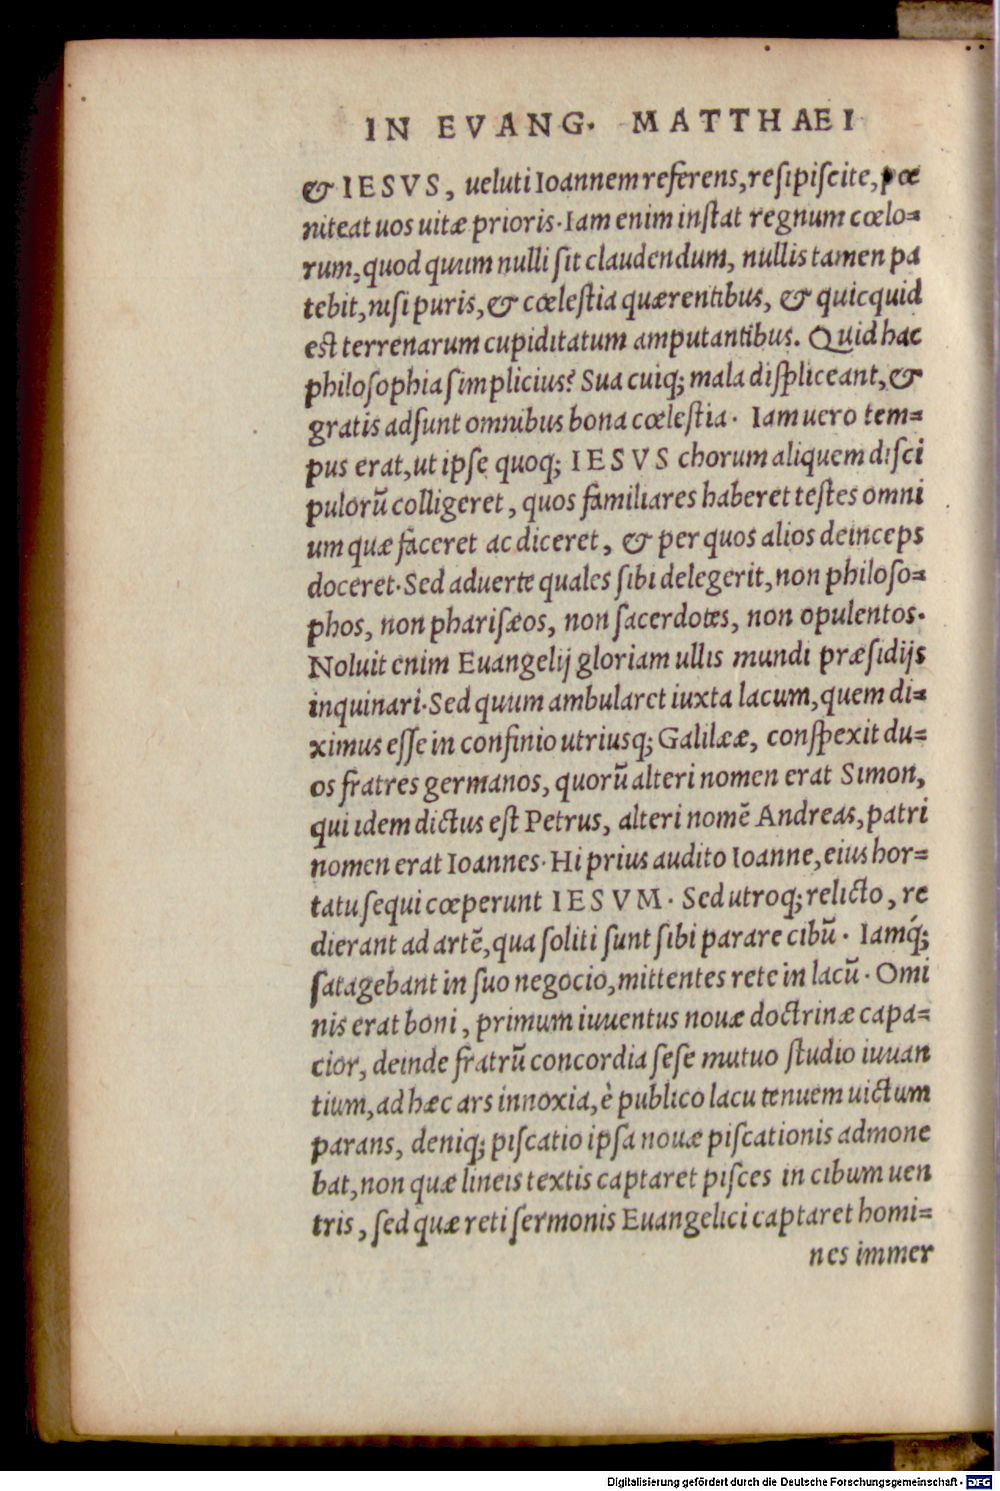 IN EVANG. MATTHAEI
& IESVS, ueluti Ioannem referens, resipiscite, pœ
niteat uos uitæ prioris. Iam enim instat regnum cœlo=
rum, quod quum nulli sit claudendum, nullis tamen pa
tebit, nisi puris, & cœlestia quærentibus, & quicquid
est terrenarum cupiditatum amputantibus. Quid hac
philosophia simplicius? Sua cuiq; mala displiceant, &
gratis adsunt omnibus bona cœlestia. Iam uero tem=
pus erat, ut ipse quoq; IESVS chorum aliquem disci
pulorũ colligeret, quos familiares haberet testes omni
um quæ faceret ac diceret, & per quos alios deinceps
doceret. Sed aduerte quales sibi delegerit, non philoso=
phos, non pharisæos, non sacerdotes, non opulentos.
Noluit enim Euangelij gloriam ullis mundi præsidijs
inquinari. Sed quum ambularet iuxta lacum, quem di=
ximus esse in confinio utriusq; Galilææ, conspexit du=
os fratres germanos, quorũ alteri nomen erat Simon,
qui idem dictus est Petrus, alteri nomẽ Andreas, patri
nomen erat Ioannes. Hi prius audito Ioanne, eius hor=
tatu sequi cœperunt IESVM. Sed utroq; relicto, re
dierant ad artẽ, qua soliti sunt sibi parare cibũ. Iamq́;
satagebant in suo negocio, mittentes rete in lacũ. Omi
nis erat boni, primum iuuentus nouæ doctrinæ capa=
cior, deinde fratrũ concordia sese mutuo studio iuuan
tium, ad hæc ars innoxia, è publico lacu tenuem uictum
parans, deniq; piscatio ipsa nouæ piscationis admone
bat, non quæ lineis textis captaret pisces in cibum uen
tris, sed quæ reti sermonis Euangelici captaret homi=
nes immer
Digitalisierung gefördert durch die Deutsche Forschungsgemeinschaft - DFG